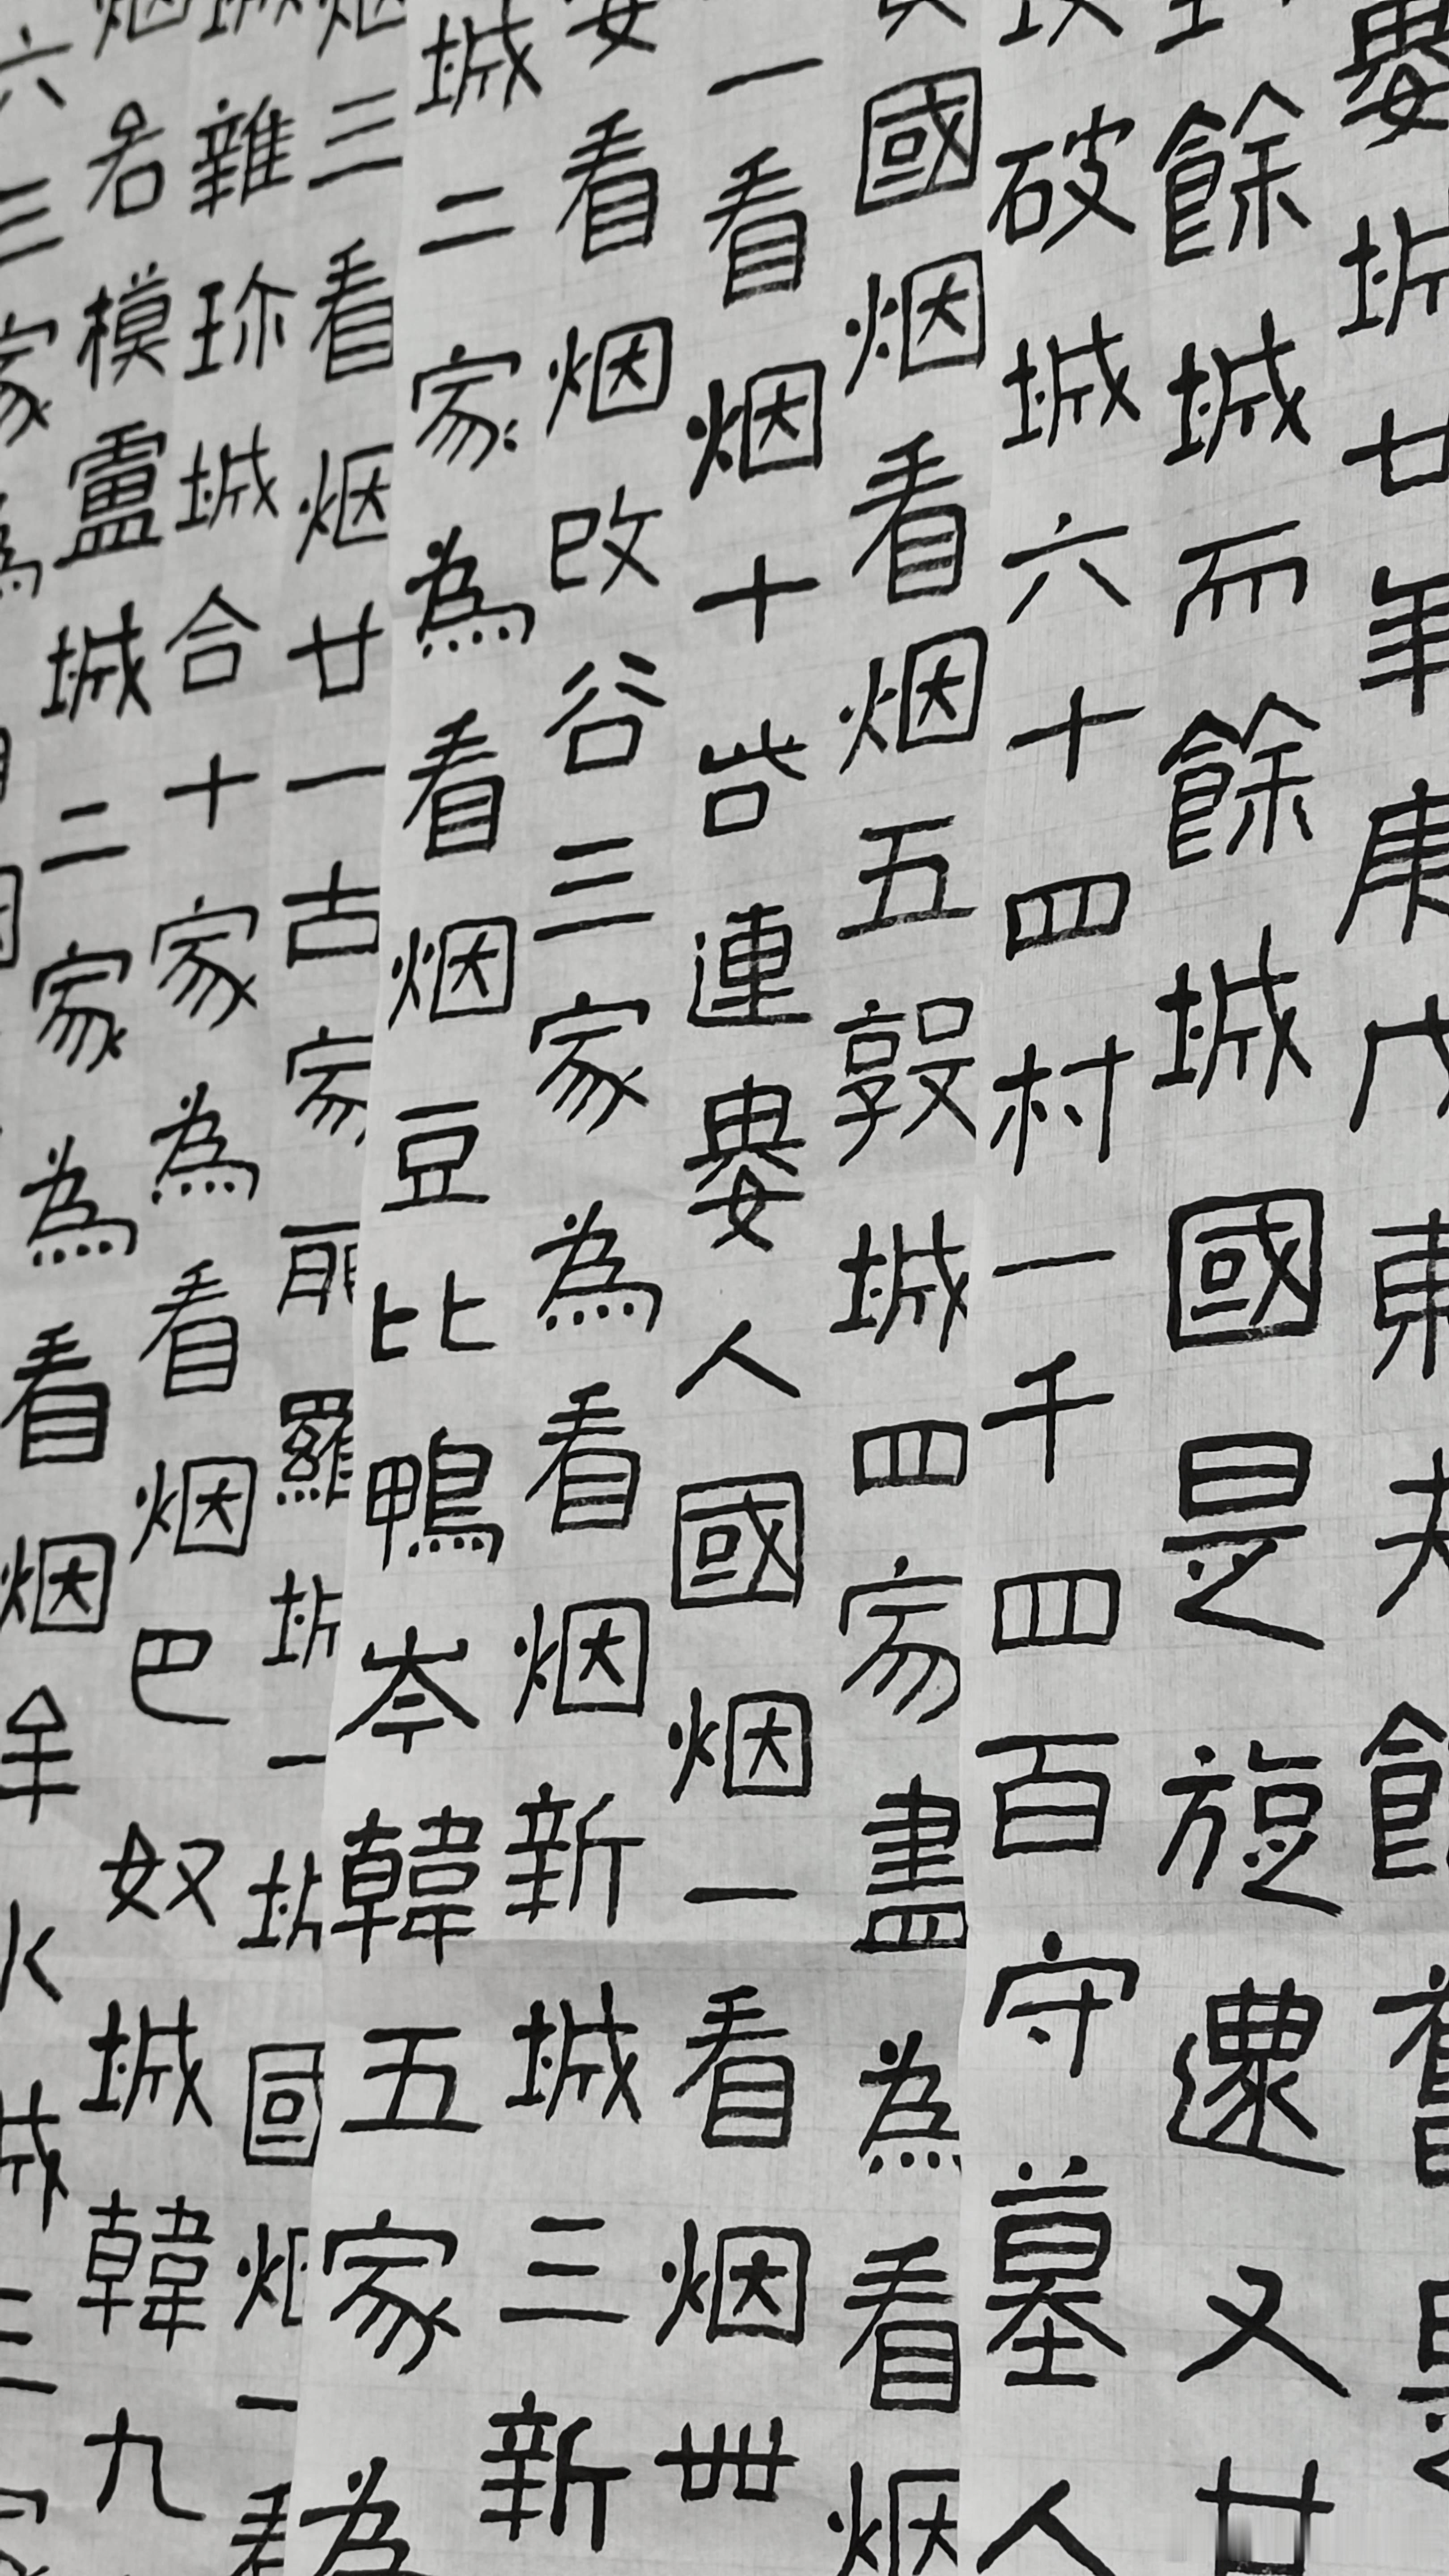 婁城廿年庚戌東夫餘舊是
餘城而餘城國是旋還又廿
破城六十四村一千四百守墓人
國烟看烟五敦城四家盡為看烟
一看烟十呰連婁人國烟一看烟卌
看烟改谷三家為看烟新城三新
城二家為看烟豆比鴨岑韓五家為
烟三看烟廿一古家羅城一城國烟一看
城雜珎城合十家為看烟巴奴城韓九
烟若模盧城二家為看烟
六三家為